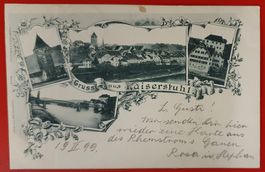 Gruss aus Kaiserstuhl
L. Gusti!
Wir senden dir hier
wieder eine Karte aus
des Rheinstroms Gauen
19. II. 99.
Rosa u. Stephan